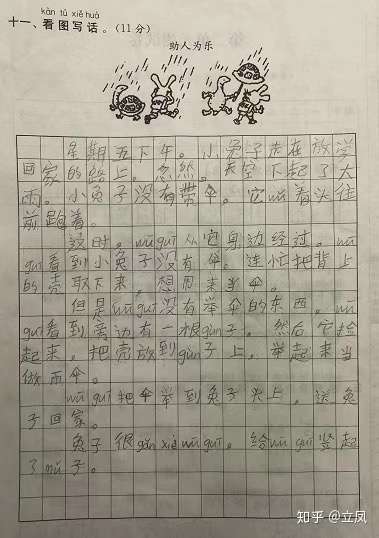 kàn tú xiě huà
十一、看图写话。(11分)
助人为乐
星期五下午。小兔子走在放学
回家的路上。忽然。天空下起了大
雨。小兔子没有带伞。它wǔ着头往
前跑着。
这时。wū guī从它身边经过。wū
guī看到小兔子没有伞。连忙把背上
的壳取下来。想用来当伞。
但是wū guī没有举伞的东西。wū
guī看到旁边有一根gùn子。然后它捡
起来。把壳放到gùn子上，举起来当
做雨伞。
wū guī把伞举到兔子头上。送兔
子回家。
兔子很gǎn xiè wū guī。给wū guī竖起
了mǔ子。
知乎 @立凤